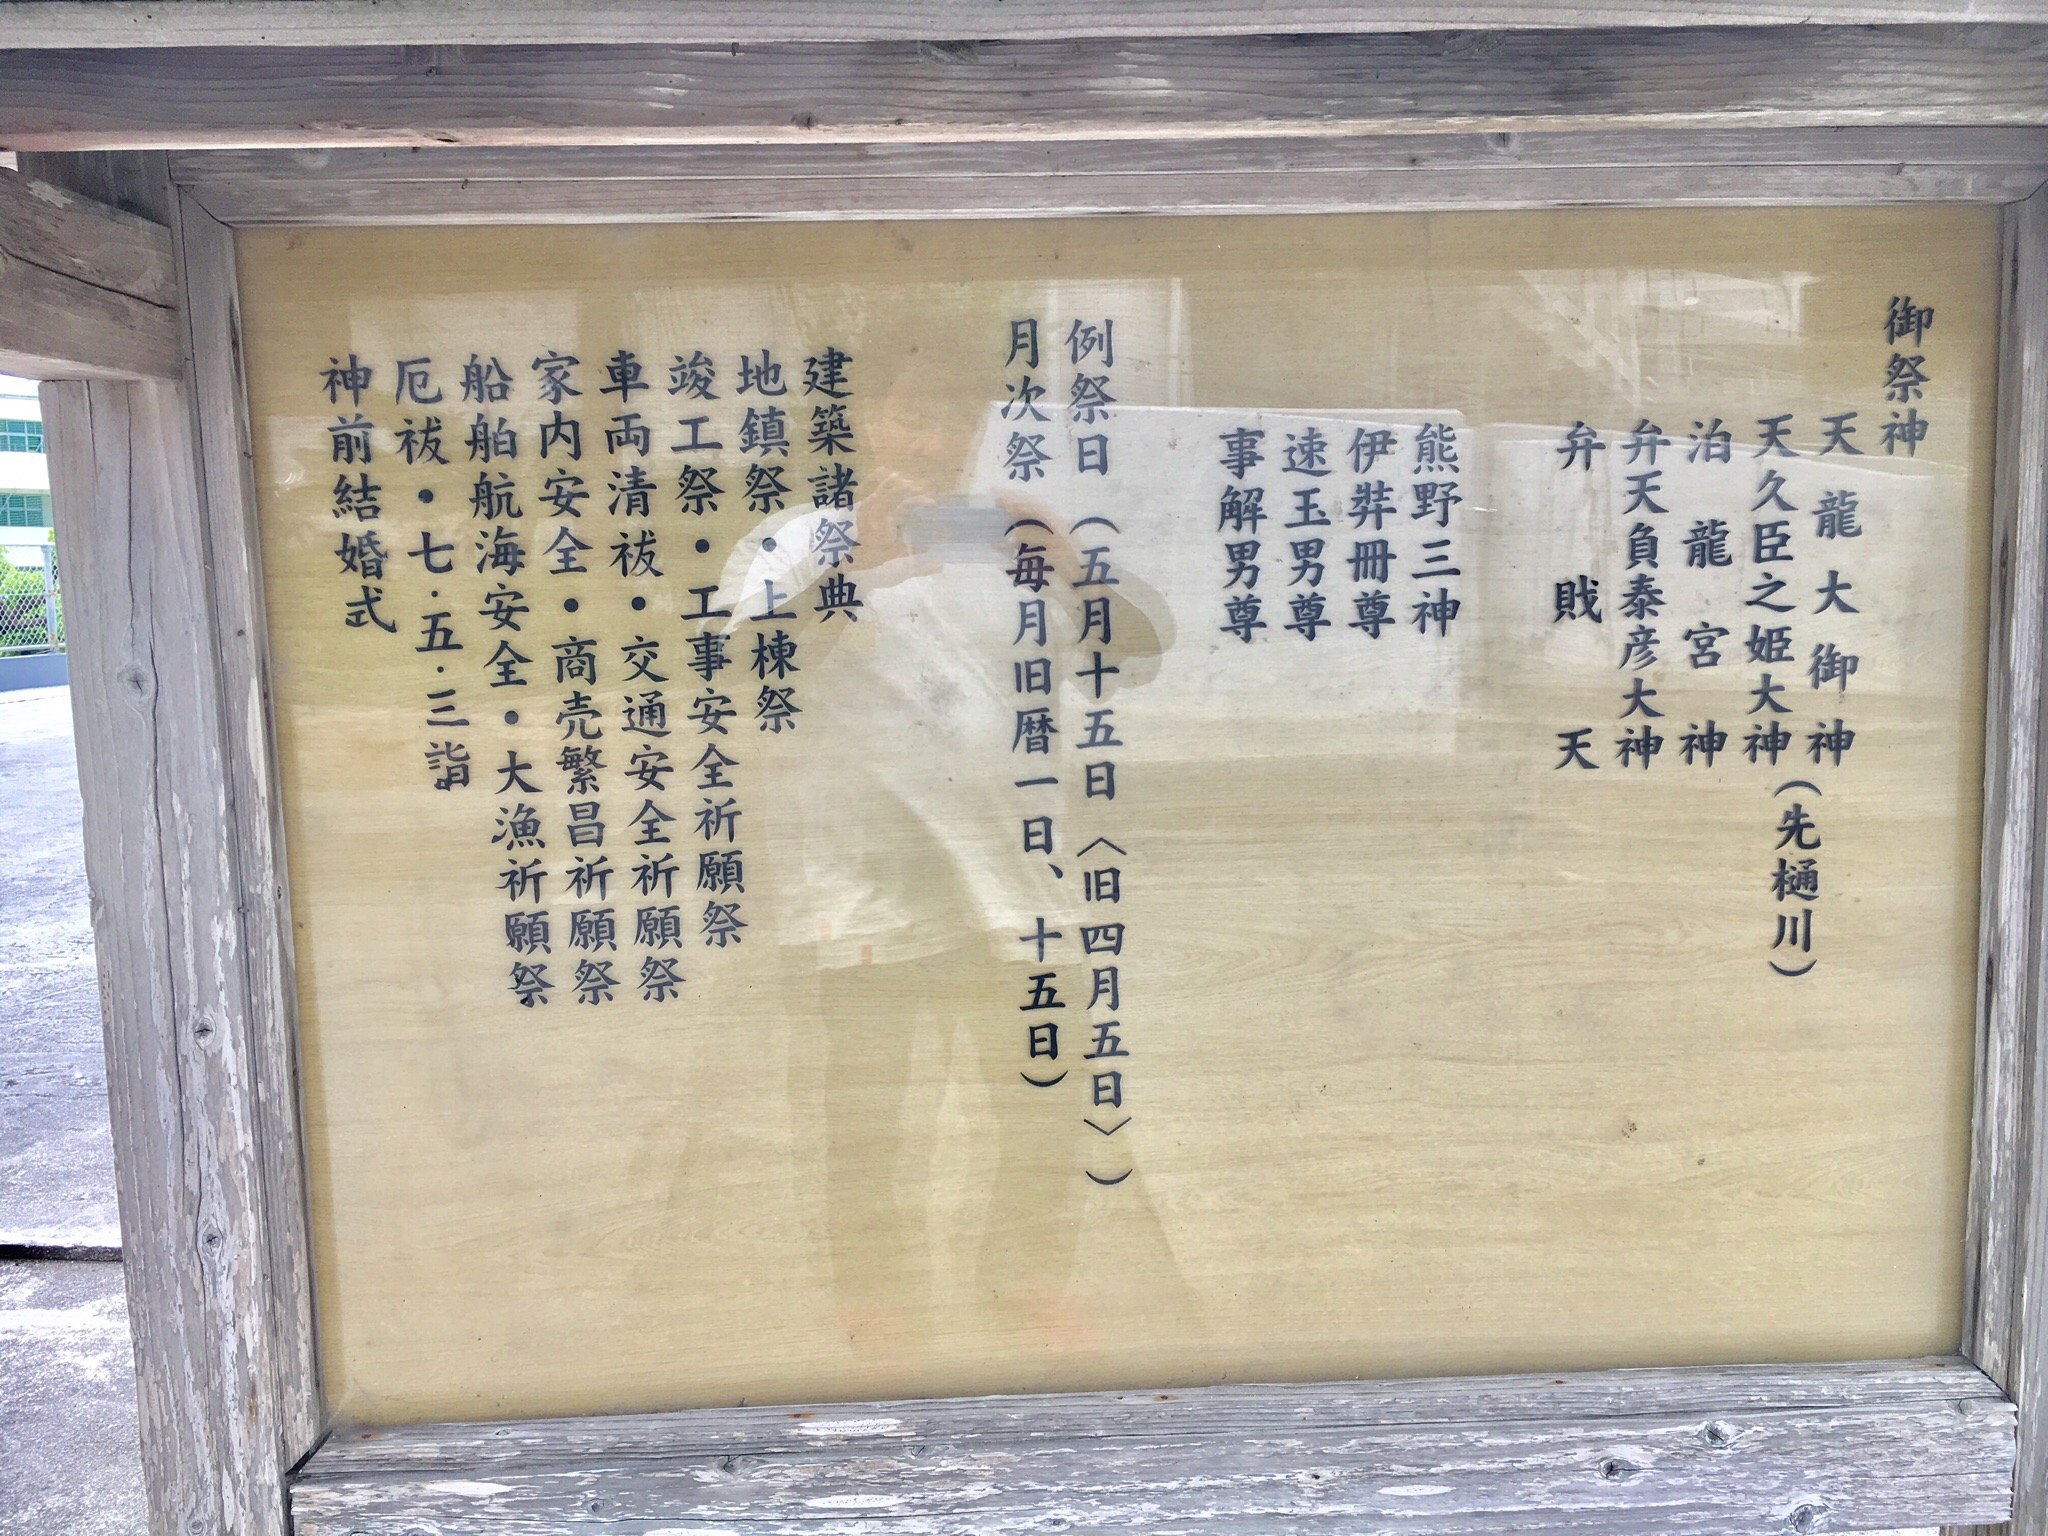 御祭神
天龍大御神
天久臣之姫大神(先樋川)
泊龍宮神
弁天負泰彦大神
弁戝天
熊野三神
伊弉冊尊
速玉男尊
事解男尊
例祭日(五月十五日〈旧四月五日〉)
月次祭(毎月旧暦一日、十五日)
建築諸祭典
地鎮祭・上棟祭
竣工祭・工事安全祈願祭
車両清祓・交通安全祈願祭
家内安全・商売繁昌祈願祭
船舶航海安全・大漁祈願祭
厄祓・七・五・三詣
神前結婚式